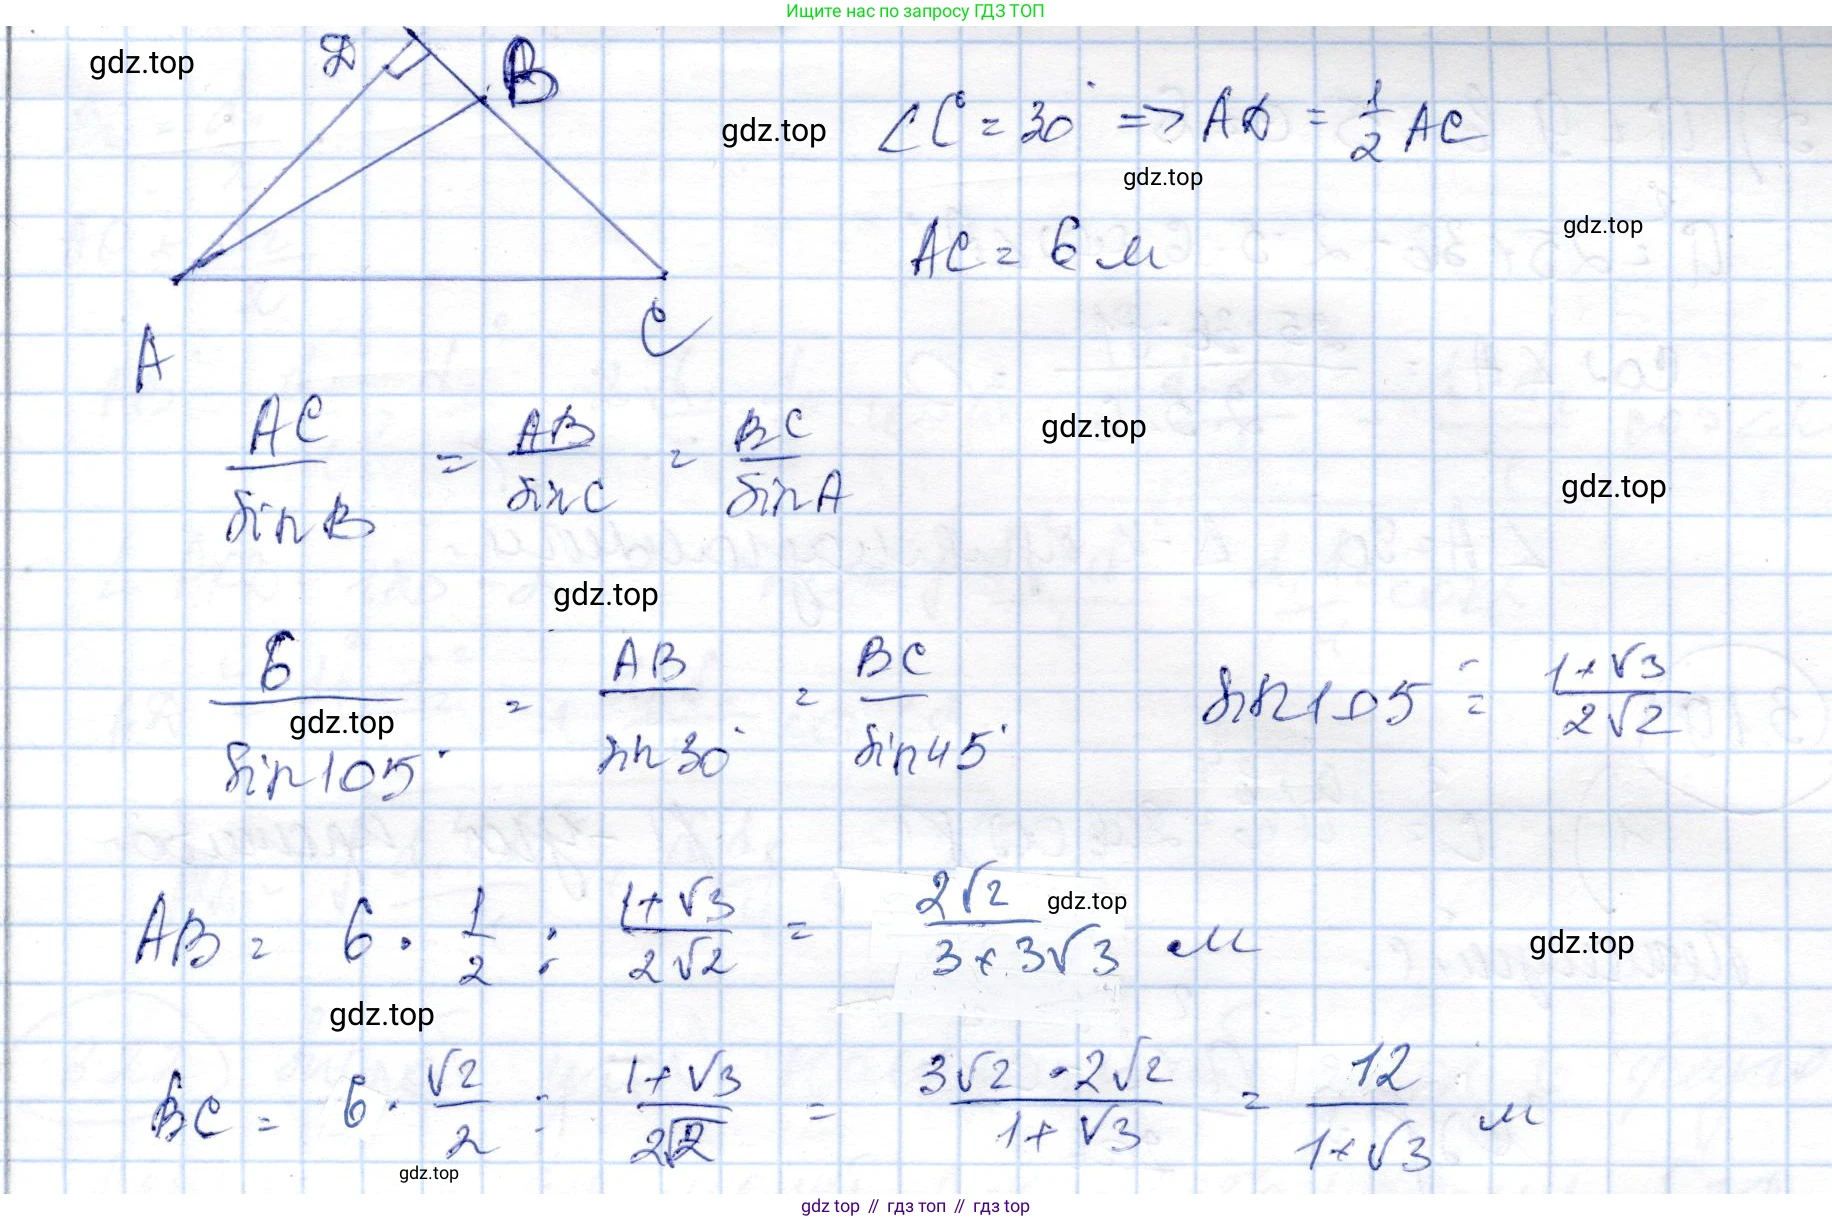 Ищите нас по запросу ГДЗ ТОП
gdz.top
D B
gdz.top
∠C = 30° => AD = 1/2 AC
gdz.top
AC = 6 м
gdz.top
A C
AC/sin B = AB/sin C = BC/sin A
gdz.top
gdz.top
gdz.top
6/sin 105° = AB/sin 30° = BC/sin 45° sin 105 = (1+√3)/(2√2)
gdz.top
AB = 6 · 1/2 : (1+√3)/(2√2) = 2√2/(3+3√3) м
gdz.top
gdz.top
gdz.top
BC = 6 · √2/2 : (1+√3)/(2√2) = (3√2 · 2√2)/(1+√3) = 12/(1+√3) м
gdz.top
gdz top // гдз топ // гдз top